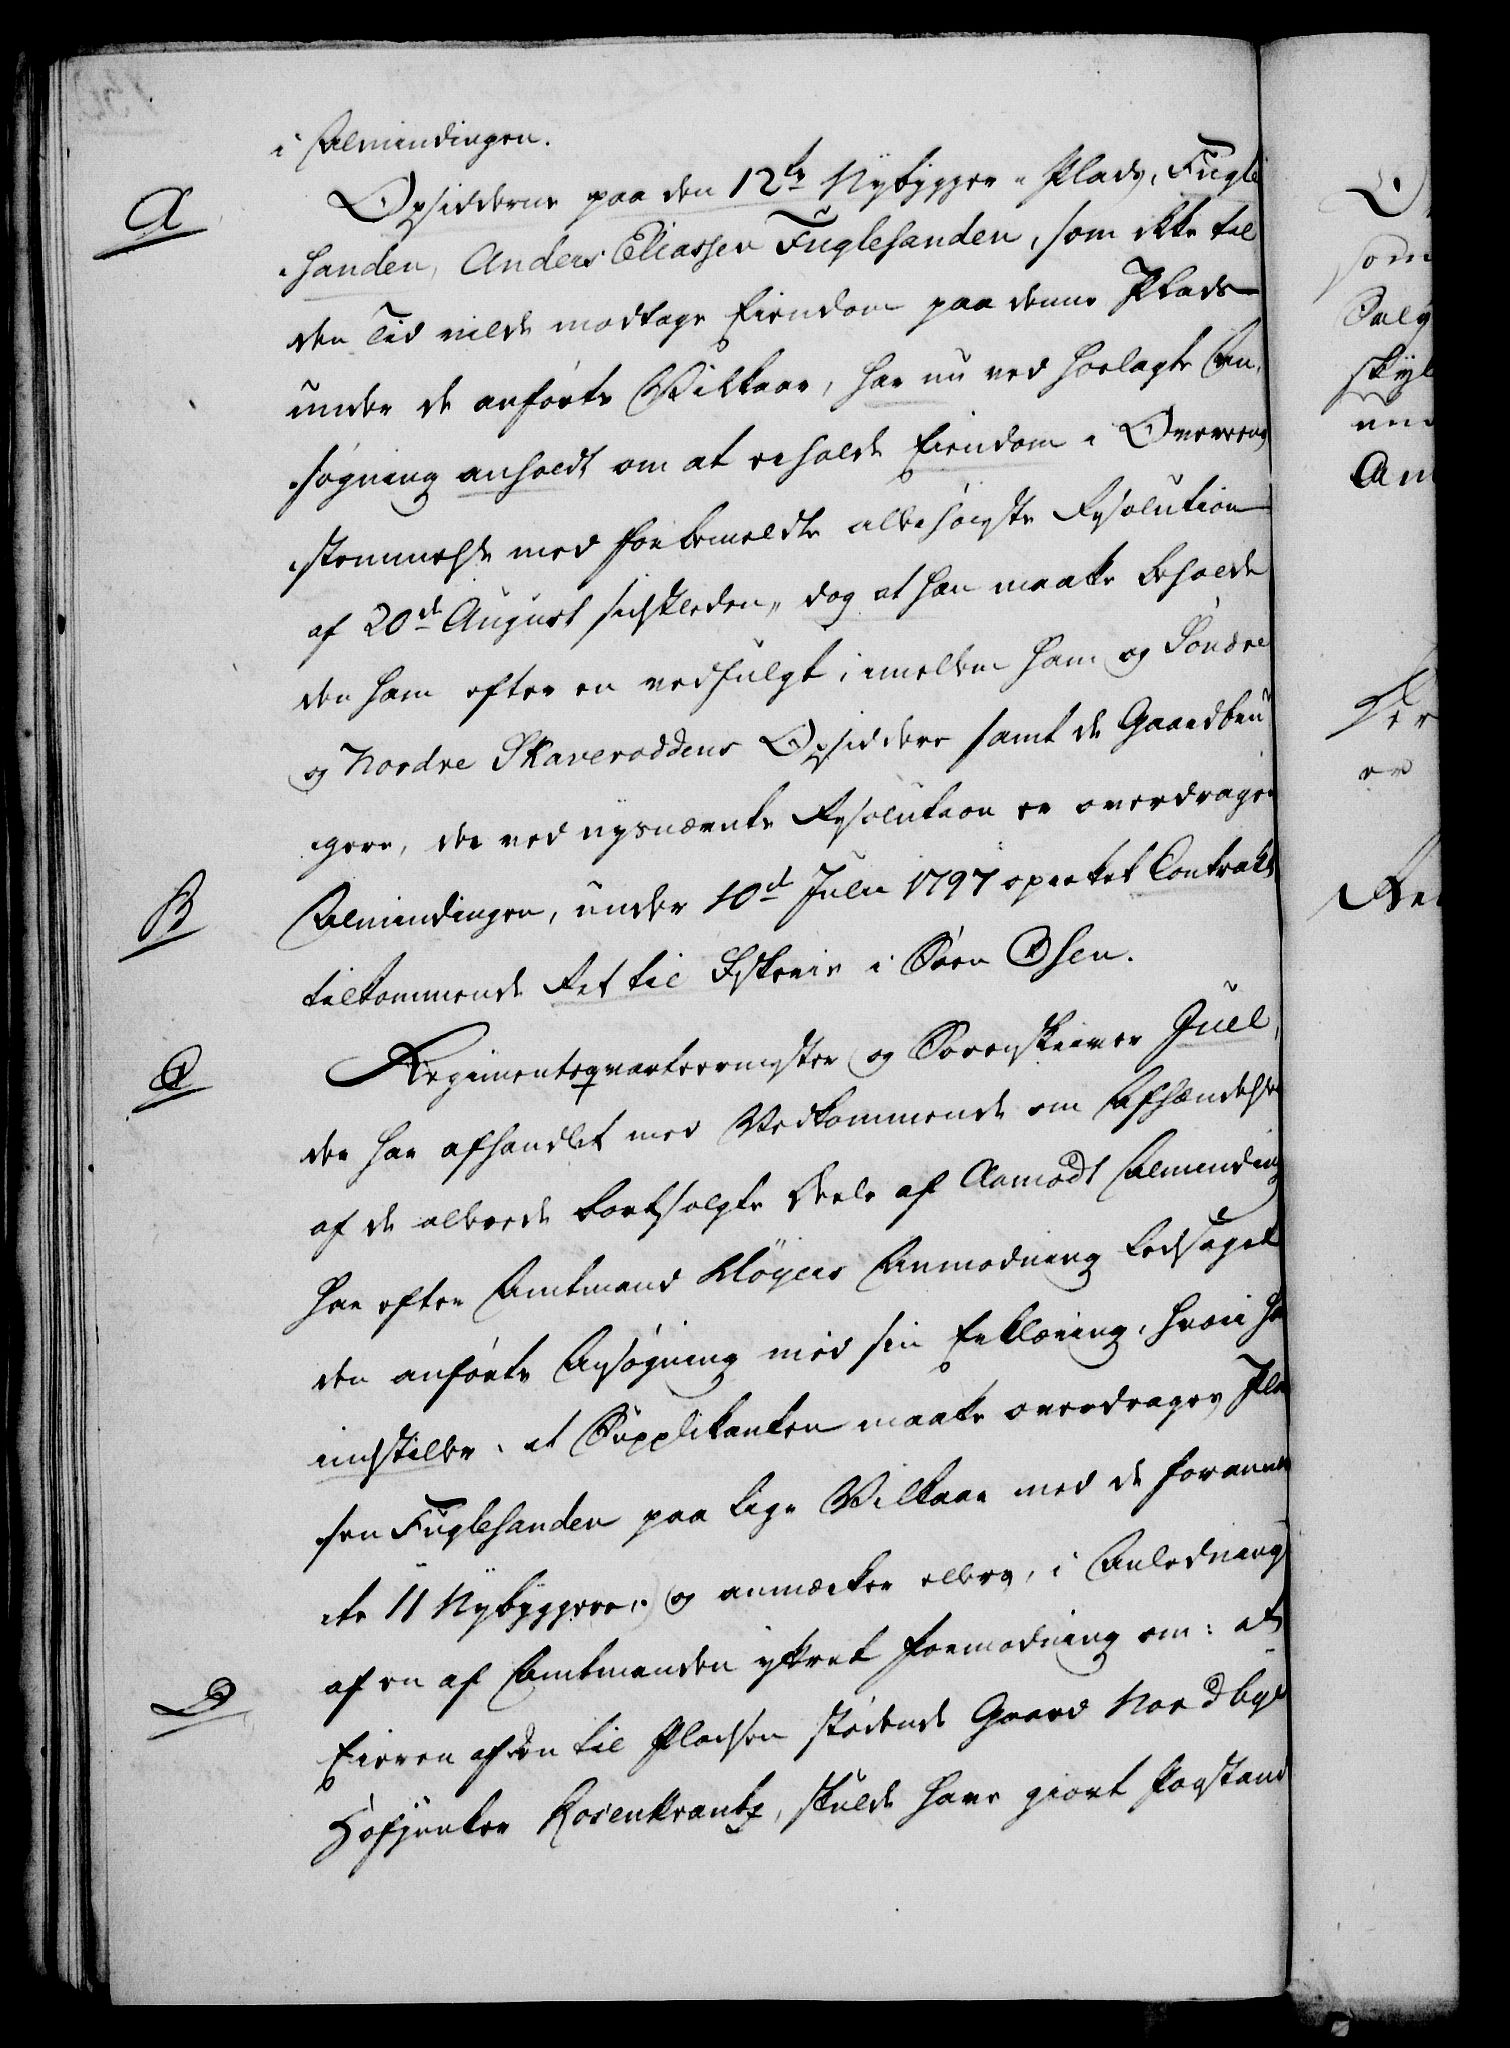 i Almindingen.
A
Opsidderne paa den 12te Nybygger-Plads, Fugle
sanden, Anders Eliassen Fuglesanden, som ikke til
den Tid vilde modtage Eiendom paa denne Plads
under de anførte Vilkaar, har nu ved hoslagte An-
søgning anholdt om at erholde Eiendom i Overeens
stemmelse med forbemeldte allerhøieste Resolution
af 20de August sidstleden, dog at han maatte beholde
den ham efter en vedfulgt, imellem ham og Søndre
og Nordre Skaveroddens Opsiddere samt de Gaardbru
gere, der ved nysnævnte Resolution er overdragen
B
Almindingen, under 10de Julii 1797 oprettet Contrakt
tilkommende Ret til Fiskerie i Søen Osen.
C
Regimentsqvarteermester og Sorenskriver Juel,
der har afhandlet med Vedkommende om Afhændelse
af de allerede bortsolgte Deele af Aamodt Alminding
har efter Amtmand Møyers Anmodning ledsaget
den anførte Ansøgning med sin Erklæring, hvori han
indstiller, at Supplikanten maatte overdrages Plad
sen Fuglesanden paa lige Vilkaar med de foranmeld
te 11 Nybyggere, og anmærker ellers, i Anledning
D
af en af Amtmanden yttret Formodning om: at
Eieren af den til Pladsen stødende Gaard Nordbye
Hofjunker Rosenkrantz, skulde have giort Paastand